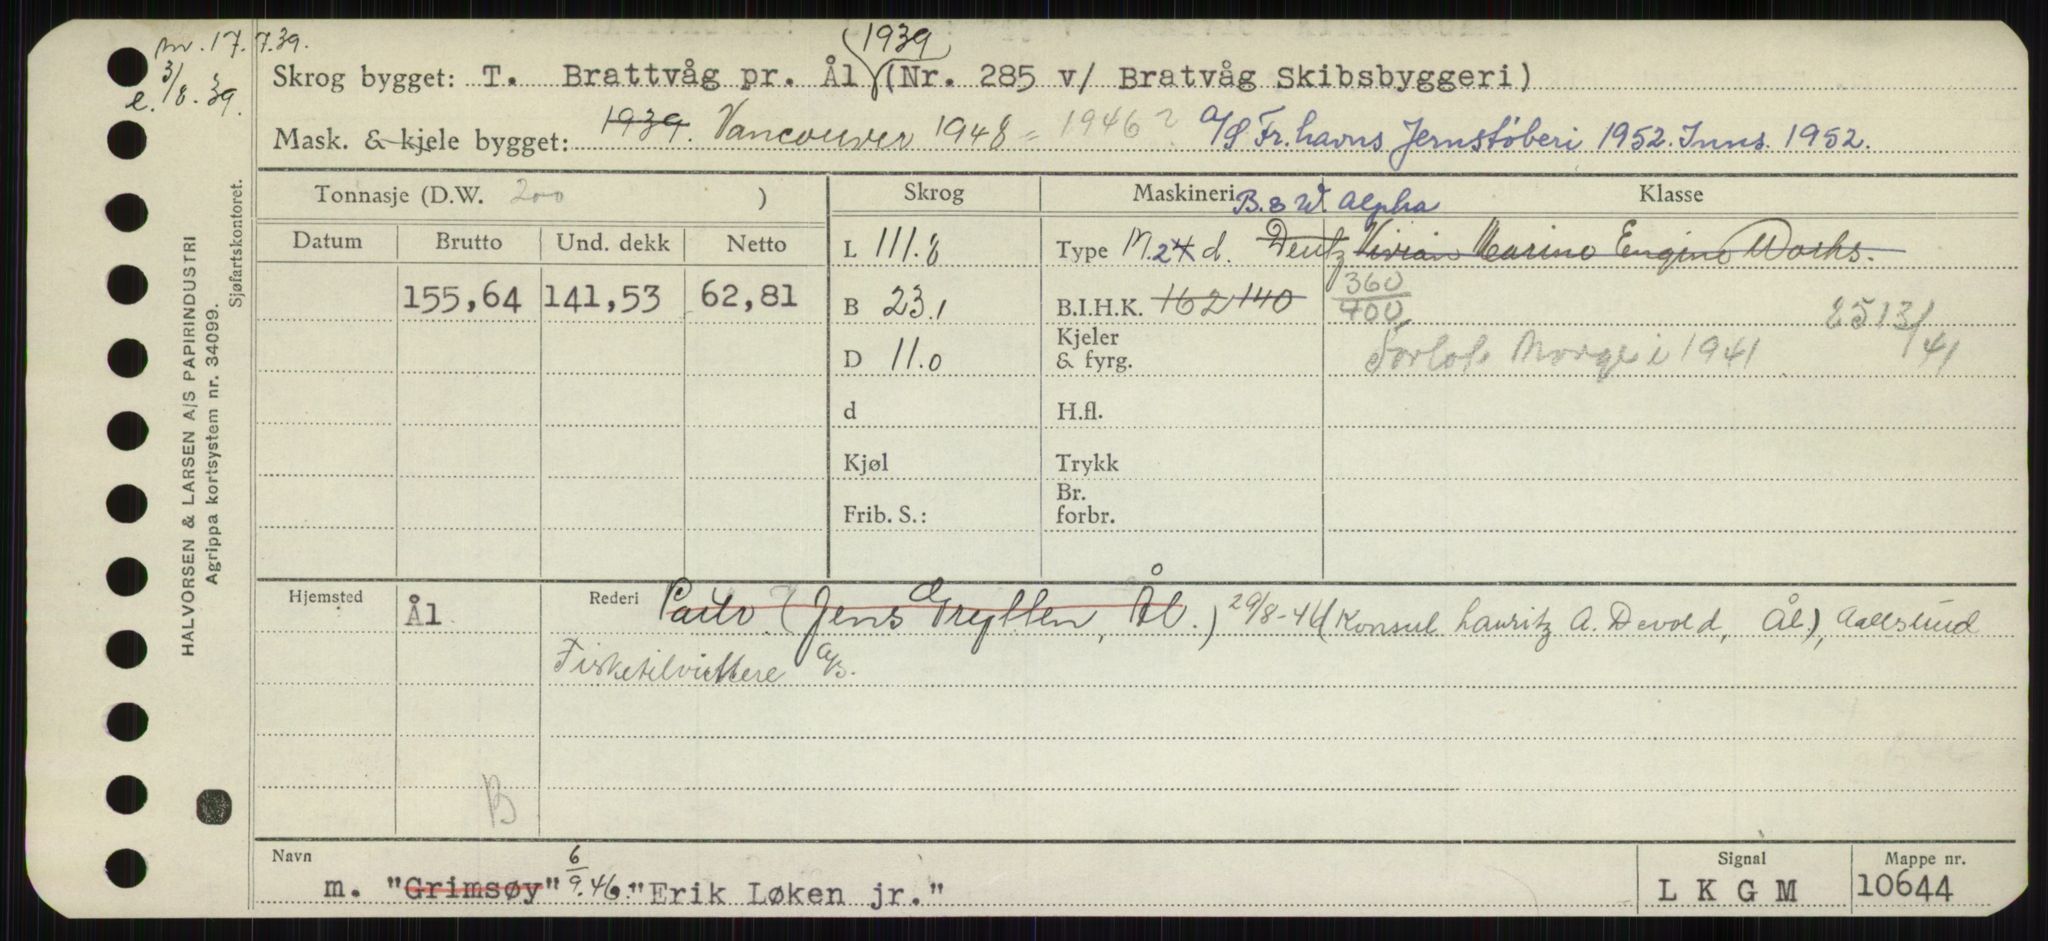 nr. 17.7.39.
e. 3/8.39.
1939
Skrog bygget: T. Brattvåg pr. Ål (Nr. 285 v/ Bratvåg Skibsbyggeri)
Mask. & kjele bygget: 1939. Vancouver 1948 = 1946? A/S Fr.havns Jernstöberi 1952. Inns. 1952.
HALVORSEN & LARSEN A/S PAPIRINDUSTRI
Agrippa kortsystem nr. 34099.
Sjøfartskontoret.
Tonnasje (D.W. 200 )
Skrog
Maskineri
Klasse
B. & W. Alpha
Datum Brutto Und. dekk Netto
L 111.8
Type M. 2 4 d. Deutz Vivian Marine Engine Works.
155,64 141,53 62,81
B 23.1
B.I.H.K. 162 140 360/400
2513/41
D 11.0
Kjeler & fyrg.
Forlot Norge i 1941
d
H.fl.
Kjøl
Trykk
Frib. S.:
Br. forbr.
Hjemsted Ål
Rederi (Jens Gryllen, Ål.) 29/8-46 (Konsul Lauritz A. Devold, Ål), Aalesund
Fisketilvirkere A/S.
B
Navn
m. "Grimsøy" 6/9.46. "Erik Løken jr."
Signal
L K G M
Mappe nr.
10644